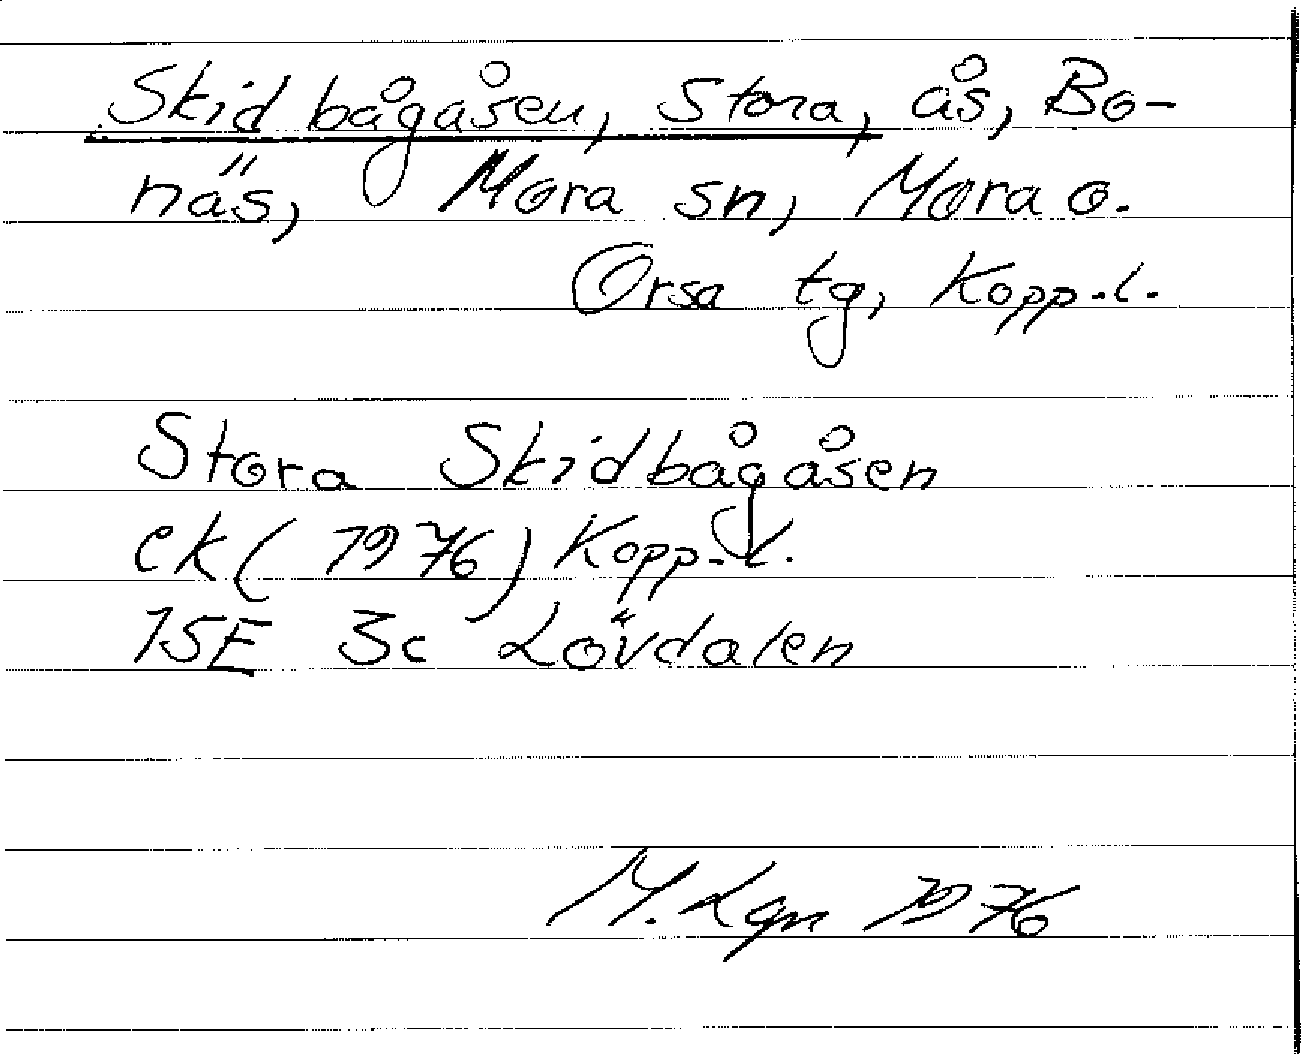 Skidbågåsen, Stora, ås, Bo-
näs, Mora sn, Mora o.
Orsa tg, Kopp.l.
Stora Skidbågåsen
ek (1976) Kopp.l.
15E 3c Lövdalen
M. Lgn 1976